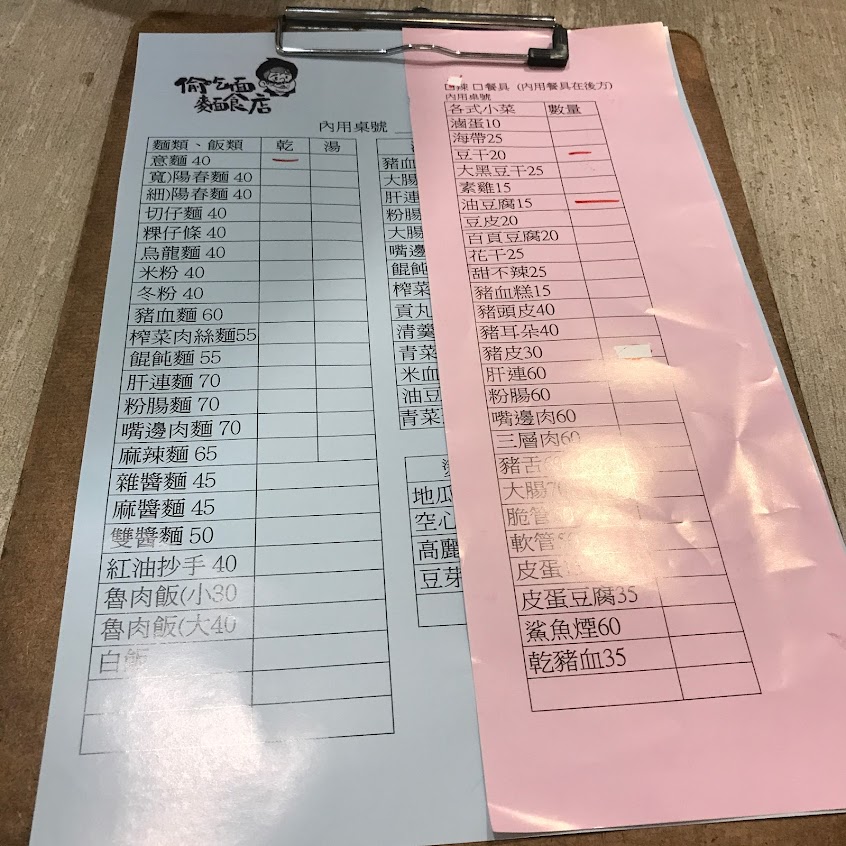 偷吃面
麵食店
內用桌號
麵類、飯類 乾 湯
意麵 40
寬)陽春麵 40
細)陽春麵 40
切仔麵 40
粿仔條 40
烏龍麵 40
米粉 40
冬粉 40
豬血麵 60
榨菜肉絲麵55
餛飩麵 55
肝連麵 70
粉腸麵 70
嘴邊肉麵 70
麻辣麵 65
雜醬麵 45
麻醬麵 45
雙醬麵 50
紅油抄手 40
魯肉飯(小30
魯肉飯(大40
白飯
豬血
大腸
肝連
粉腸
大腸
嘴邊
餛飩
榨菜
貢丸
清羹
青菜
米血
油豆
青菜
地瓜
空心
高麗
豆芽
辣 口餐具 (內用餐具在後方)
內用桌號
各式小菜 數量
滷蛋10
海帶25
豆干20
大黑豆干25
素雞15
油豆腐15
豆皮20
百頁豆腐20
花干25
甜不辣25
豬血糕15
豬頭皮40
豬耳朵40
豬皮30
肝連60
粉腸60
嘴邊肉60
三層肉60
豬舌
大腸
脆管
軟管
皮蛋
皮蛋豆腐35
鯊魚煙60
乾豬血35